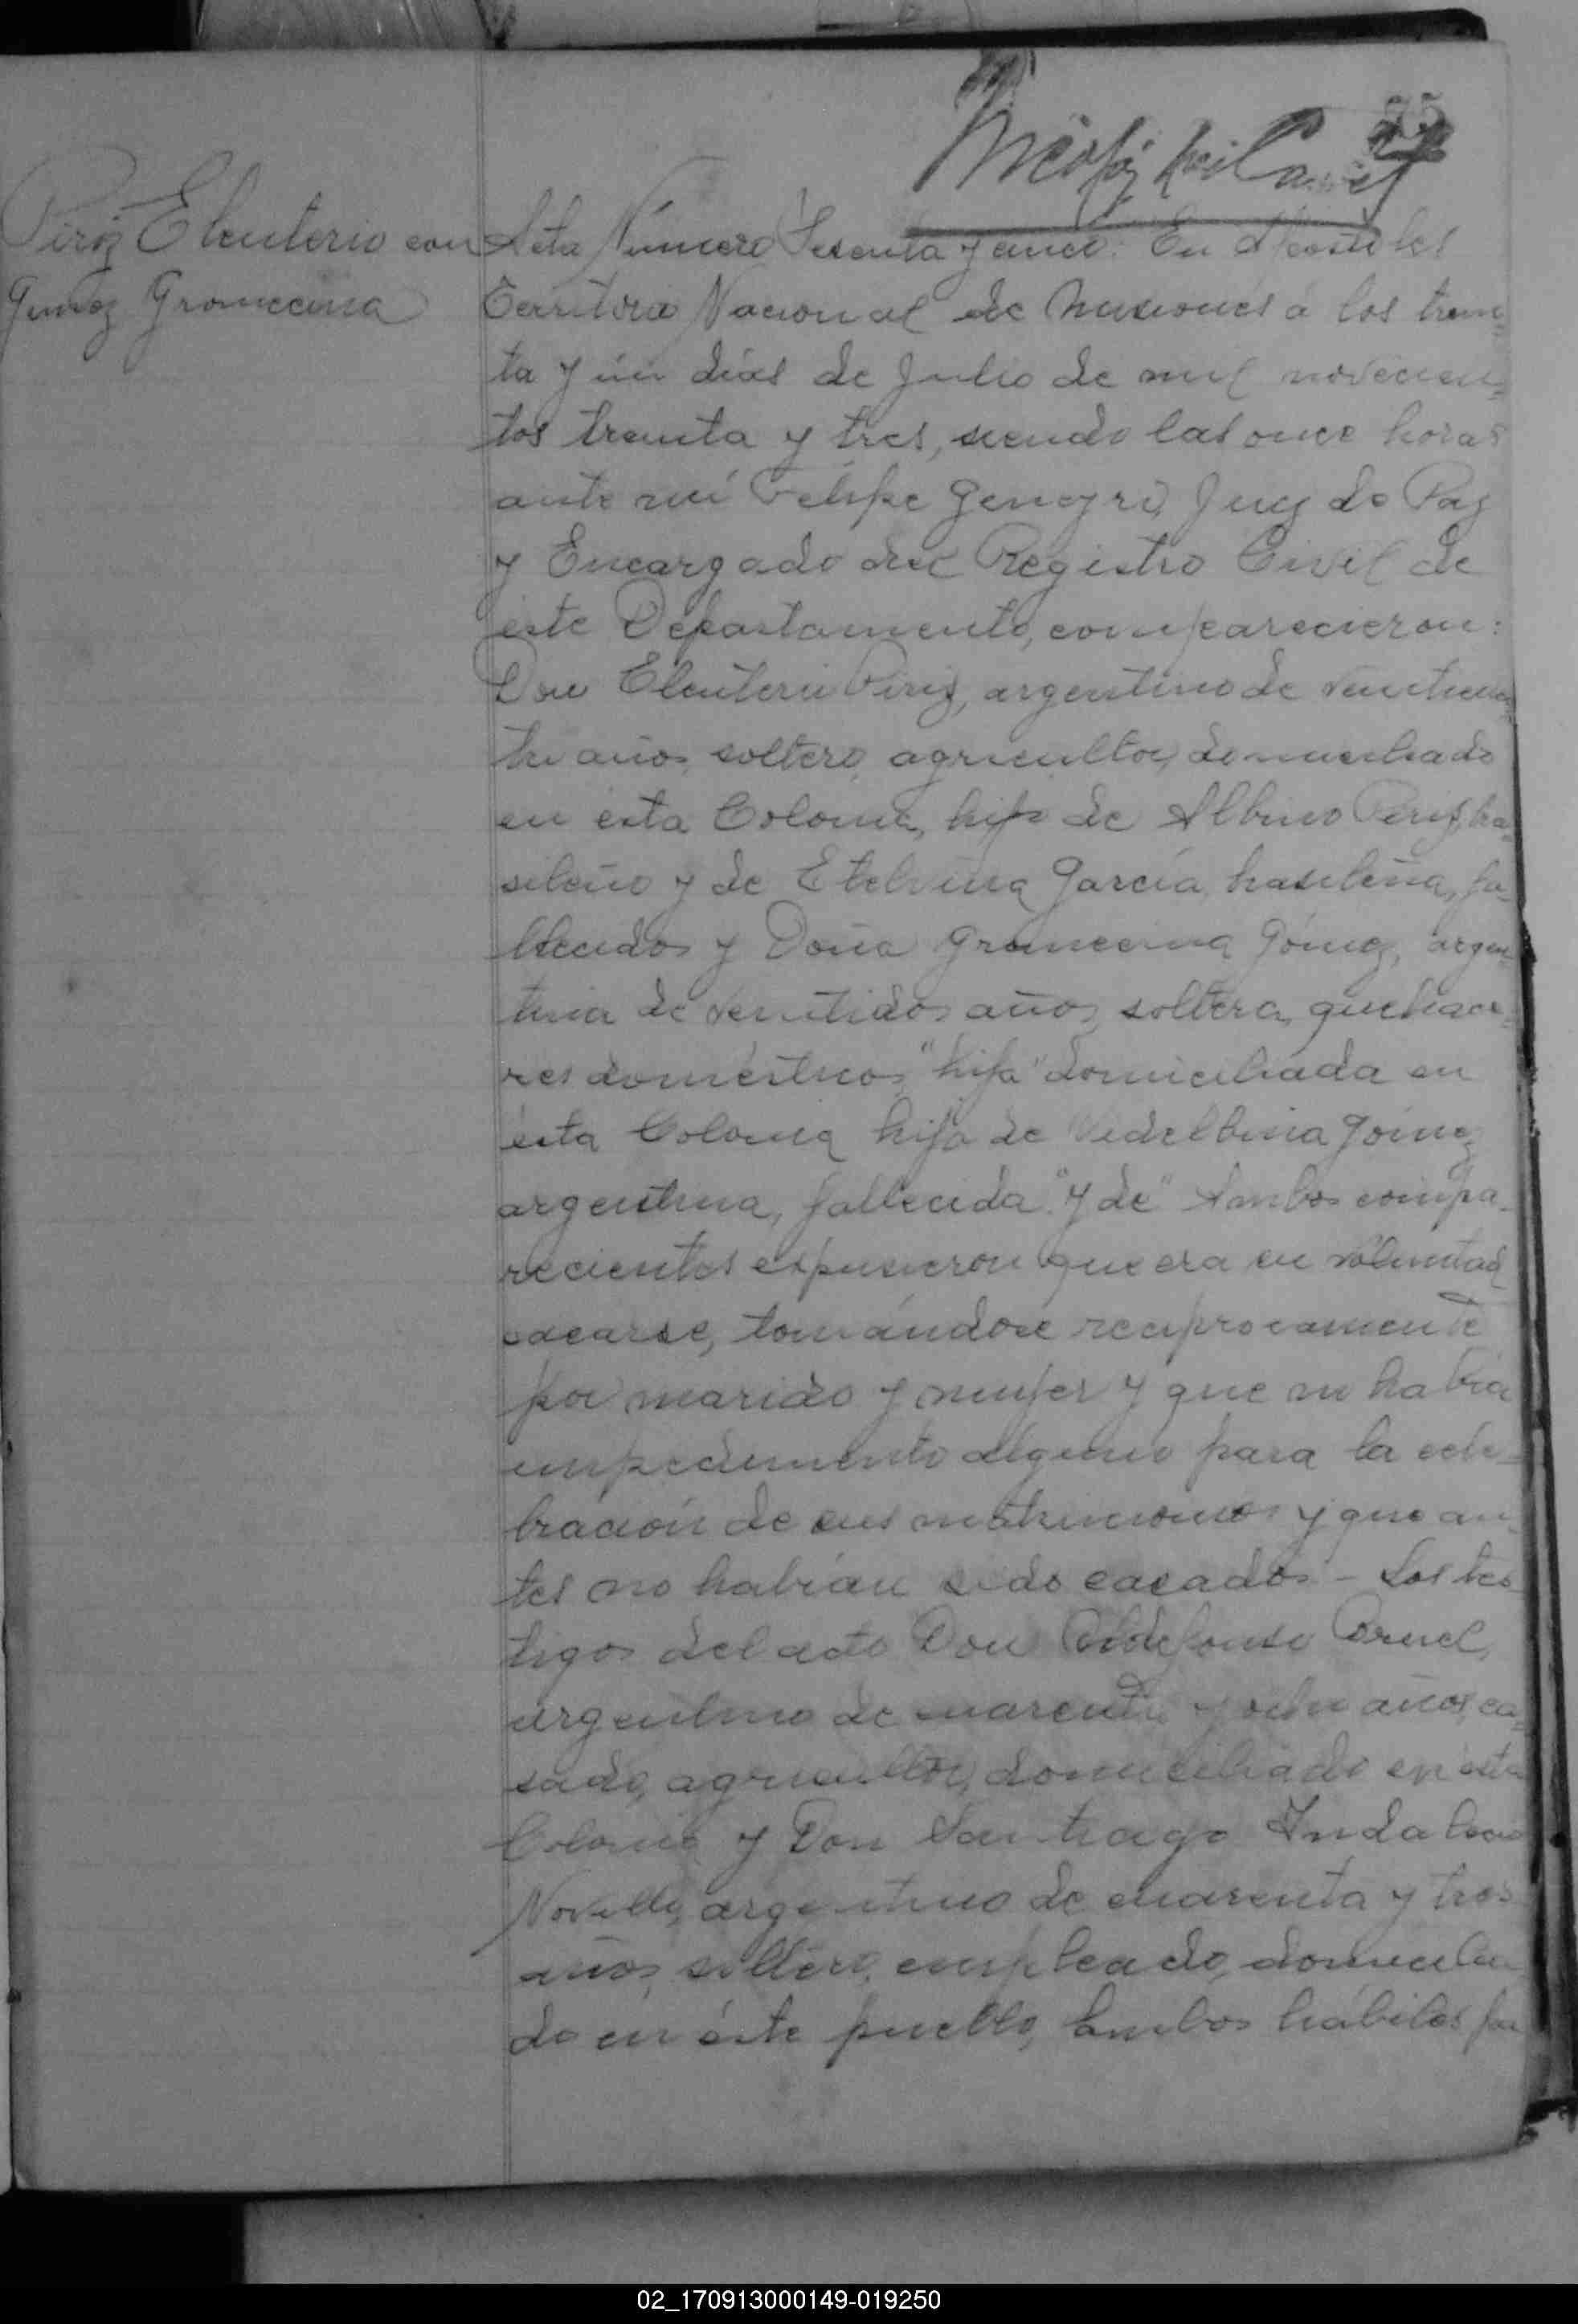 75
Piriz Eleuterio con
Gomez Gromecina
Acta Número Sesenta y cinco: En Apostoles
Territorio Nacional de Misiones á los trein=
ta y ún días de Julio de mil novecien=
tos treinta y tres, siendo las once horas
ante mí Felipe Juez de Paz
y Encargado del Registro Civil de
éste Departamento, comparecieron:
Don Eleuterio Piriz, argentino de
años, soltero, agricultor, domiciliado
en ésta Colonia, hijo de Albino Piriz, bra=
sileño y de Etelvina García, brasileña, fa=
llecidos y Doña Gromecina Gómez, argen=
tina de ventidos años, soltera, quehace=
res domésticos, "hija" domiciliada en
ésta Colonia hija de Gómez
argentina, fallecida "y de" Ambos compa=
recientes expusieron que era su voluntad
casarse, tomándose reciprocamente
por marido y mujer y que no había
impedimento alguno para la cele=
bración de sus matrimonios y que an=
tes no habían sido casados - Los tes=
tigos del acto Don Ildefonso
argentino de cuarenta y ocho años, ca=
sado, agricultor, domiciliado en ésta
Colonia y Don Santiago Indalecio
Novelly, argentino de cuarenta y tres
años, soltero, empleado, domicilia
do en éste pueblo, ambos hábiles pa
02_170913000149-019250